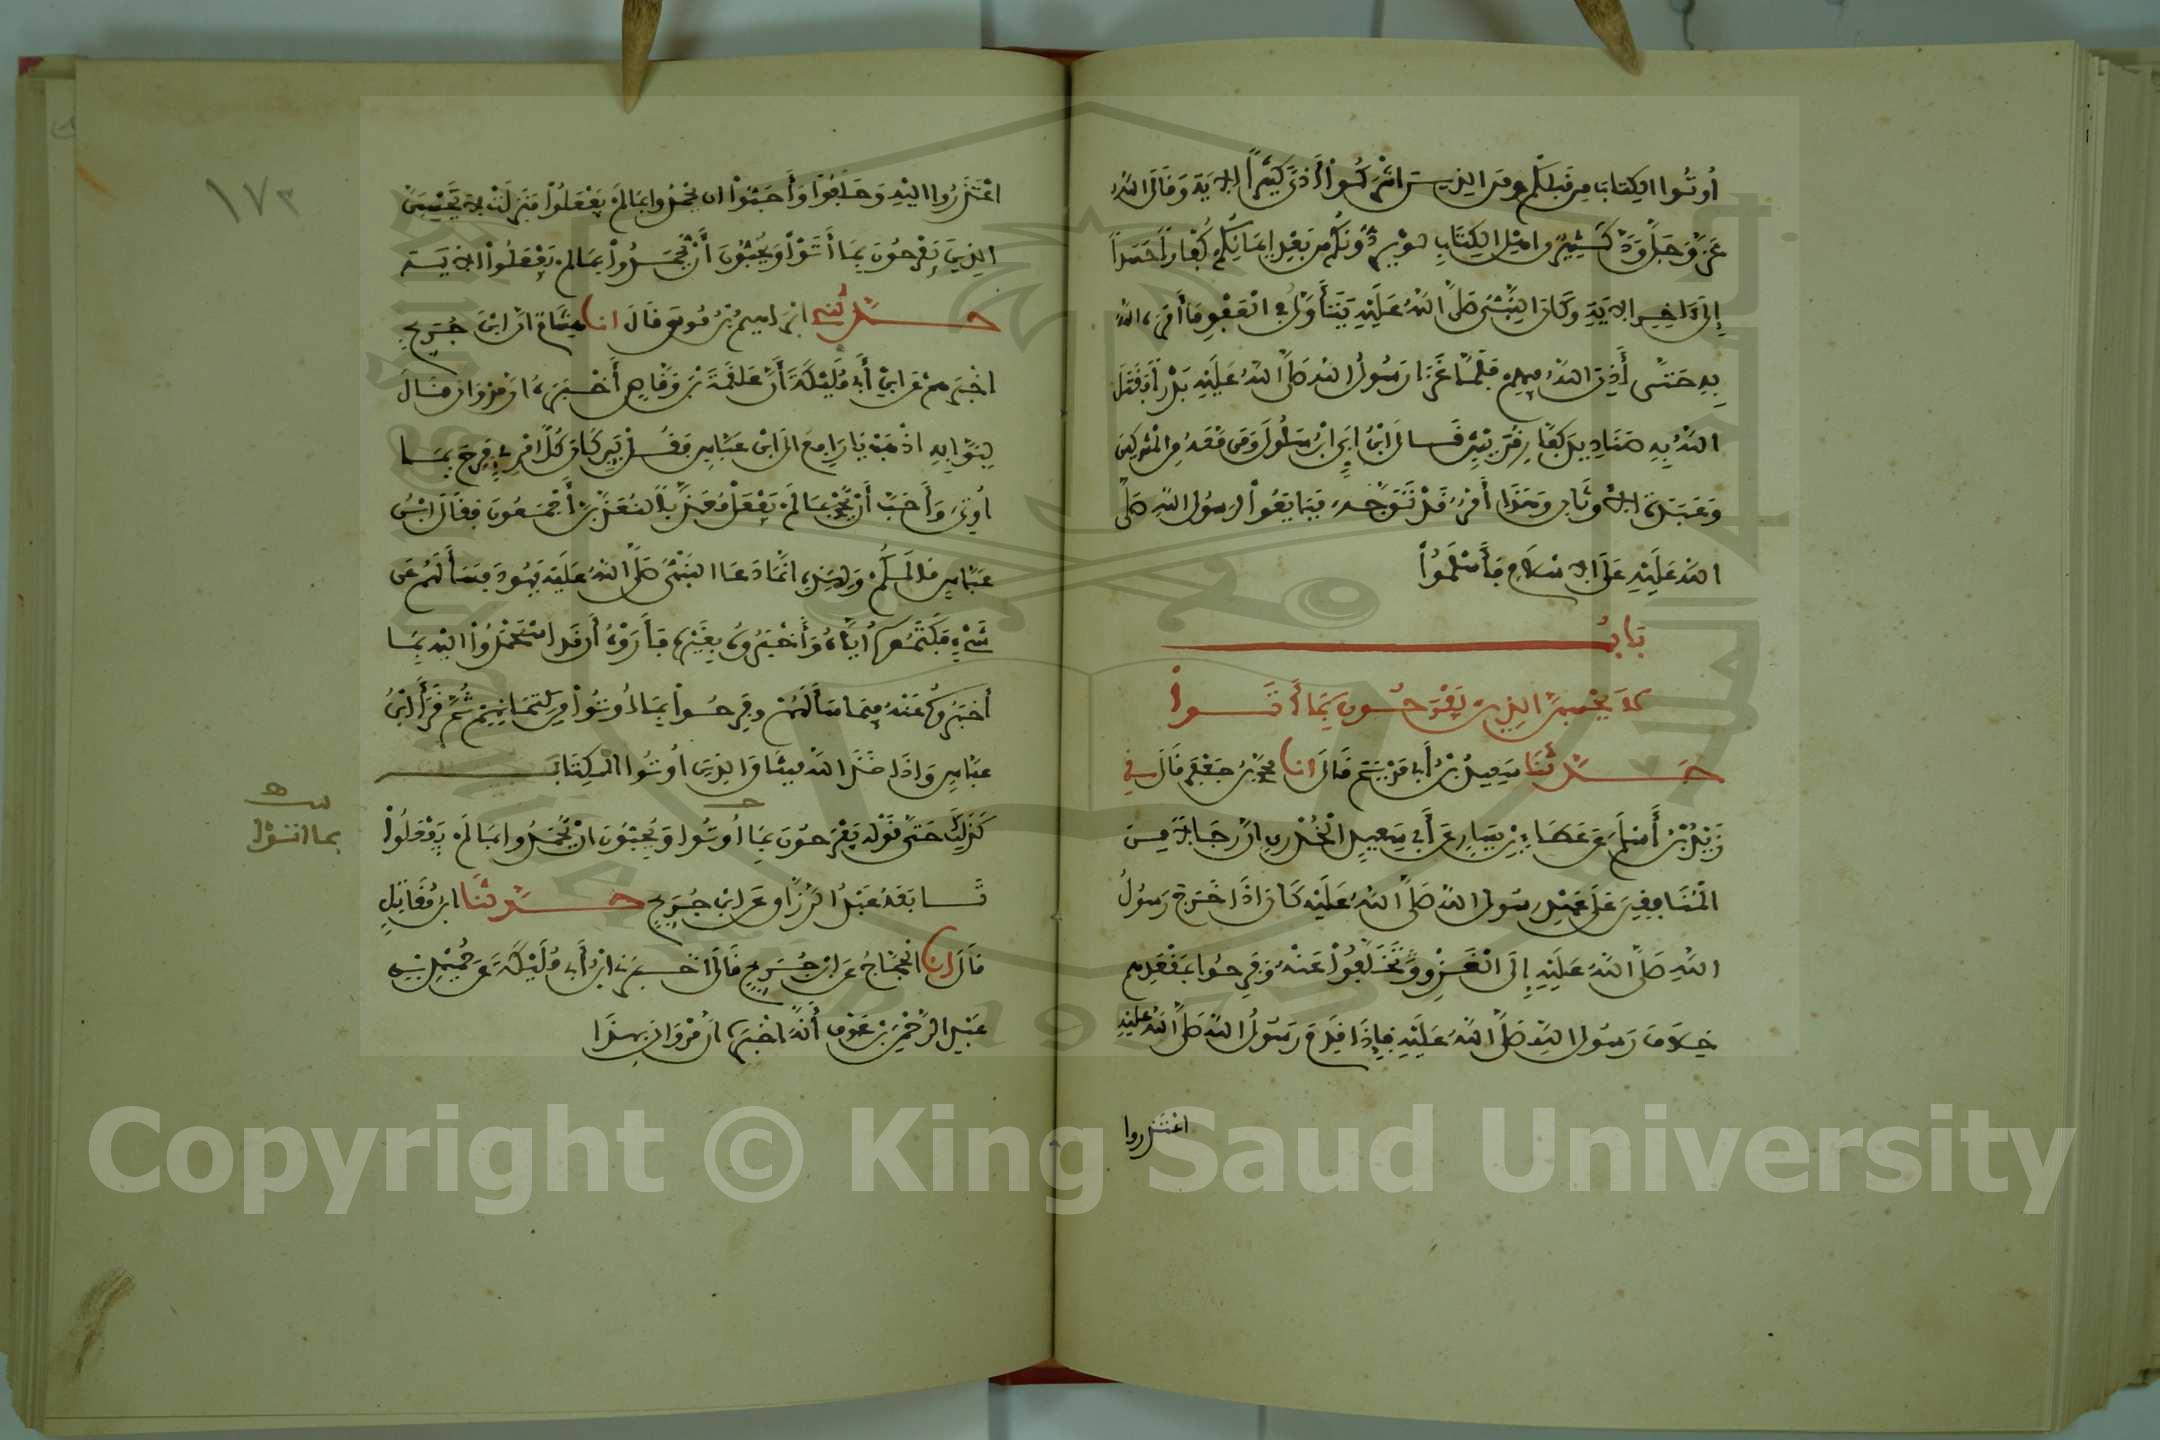 أُوتُوا الكِتابَ من قبلكم ومن الذين اشركوا أذى كثيرا الاية وقال الله
عز وجل ود كثير من اهل الكتاب لو يردونكم من بعد ايمانكم كفارا حسدا
إلى ءاخر الاية وكان النبي صلى الله عليه يتأول في العفو ما أمره الله
به حتى أذن الله فيهم فلما غزا رسول الله صلى الله عليه بدرا فقتل
الله به صناديد كفار قريش قال ابن ابي ابن سلول ومن معه من المشركين
وعبدة الاوثان وهذا أمر قد توجه فبايعوا لرسول الله صلى
الله عليه على الاسلام فأسلموا
باب
لا يحسبن الذين يفرحون بما أتوا
حدثنا سعيد بن أبي مريم قال انا محمد بن جعفر قال في
زيد بن أسلم عن عطاء بن يسار عن أبي سعيد الخدري ان رجالا من
المنافقين على عهد رسول الله صلى الله عليه كان اذا خرج رسول
الله صلى الله عليه إلى الغزو وتخلفوا عنه وفرحوا بمقعدهم
خلاف رسول الله صلى الله عليه فإذا قدم رسول الله صلى الله عليه
اعتذروا
١٧٣
اعتذروا اليه وحلفوا وأحبوا ان يحمدوا بما لم يفعلوا فنزلت لا تحسبن
الذين يفرحون بما أتوا ويحبون أن يحمدوا بما لم يفعلوا الاية
حدثني ابراهيم بن موسى قال انا هشام ان ابن جريج
اخبرهم عن ابن أبي مليكة أن علقمة بن وقاص أخبره ان مروان قال
لبوابه اذهب يا رافع الى ابن عباس فقل لين كان كل امرئ فرح بما
أوتي وأحب أن يحمد بما لم يفعل معذبا لنعذبن أجمعون فقال ابن
عباس ما لكم ولهذه انما دعا النبي صلى الله عليه يهود فسألهم عن
شيء فكتموه اياه وأخبروه بغيره فأروه أن قد استحمدوا اليه بما
أخبروه عنه فيما سألهم وفرحوا بما أوتوا من كتمانهم ثم قرأ ابن
عباس وإذ اخذ الله ميثاق الذين أوتوا الكتاب
كذلك حتى قوله يفرحون بما أوتوا ويحبون ان يحمدوا بما لم يفعلوا
تابعه عبد الرزاق عن ابن جريج حدثنا ابن مقاتل
قال انا الحجاج عن ابن جريج قال اخبرني ابن أبي مليكة عن حميد بن
عبد الرحمن بن عوف أنه اخبره ان مروان بهذا
بما اتوا
Copyright © King Saud University